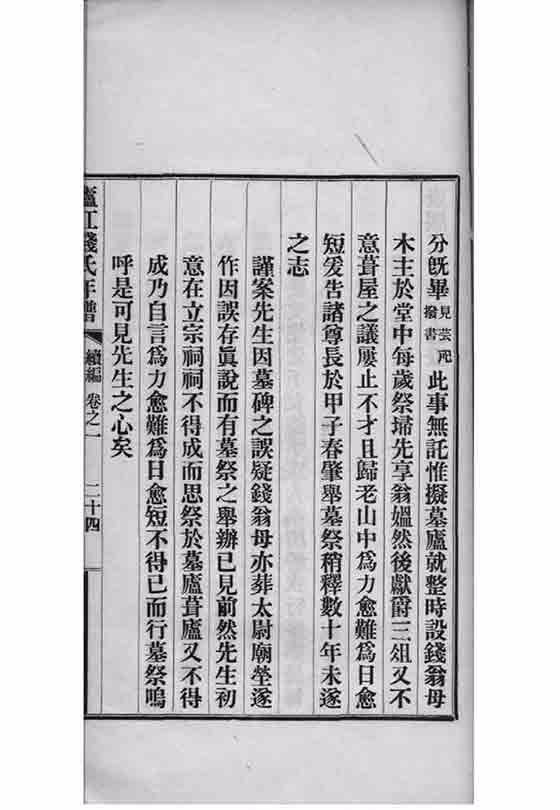 分既畢見芸甌撥書此事無託惟擬墓廬就整時設錢翁母
木主於堂中每歲祭埽先享翁媼然後獻爵三俎又不
意葺屋之議屢止不才且歸老山中爲力愈難爲日愈
短爰告諸尊長於甲子春肇舉墓祭稍釋數十年未遂
之志
謹案先生因墓碑之誤疑錢翁母亦葬太尉廟塋遂
作因誤存眞說而有墓祭之舉辦已見前然先生初
意在立宗祠祠不得成而思祭於墓廬葺廬又不得
成乃自言爲力愈難爲日愈短不得已而行墓祭嗚
呼是可見先生之心矣
廬江錢氏年譜 續編 卷之一 二十四